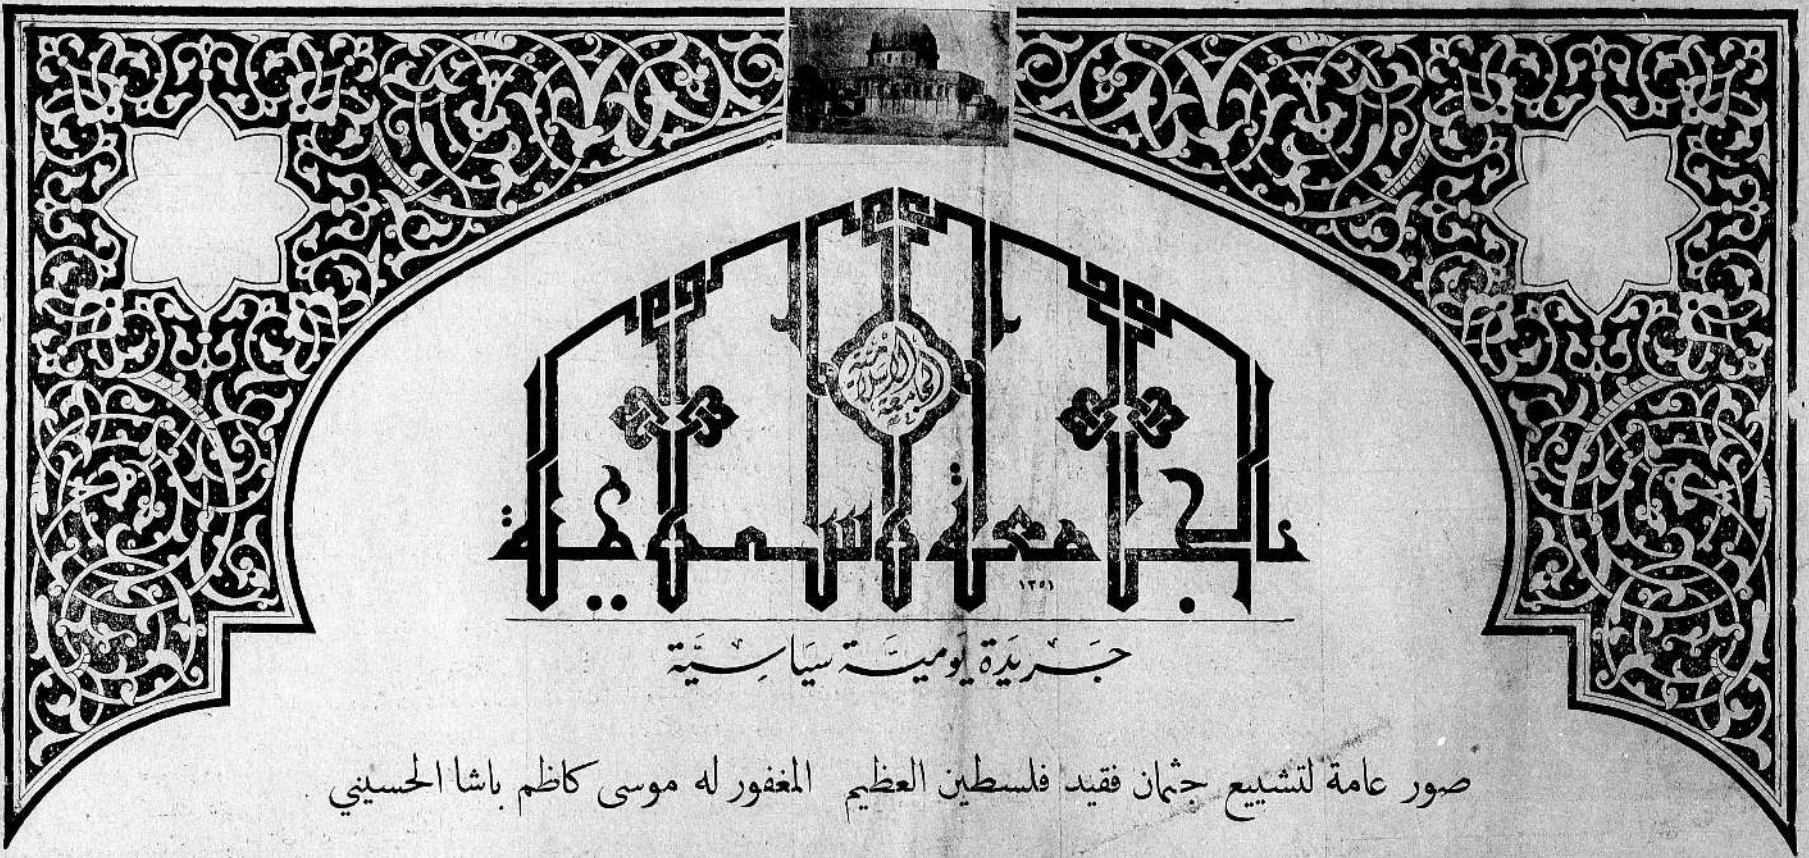 الجامعة الإسلامية
الجامعة الاسلامية
١٣٥١
جَريدَة يَوميَّة سيَاسِيَّة
صور عامة لتشييع جثمان فقيد فلسطين العظيم المغفور له موسى كاظم باشا الحسيني